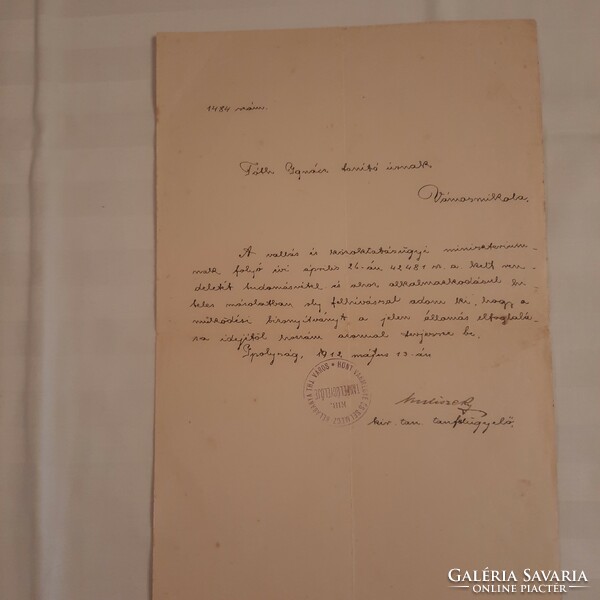 1484 szám.
Tóth Ignácz tanító úrnak
Vámosmikola.
A vallás és közoktatásügyi miniszterium-
nak folyó évi április 26-án 42481 sz. a. kelt ren-
deletét tudomásvétel és alkalmazkodásul hi-
teles másolatban oly felhívással adom ki, hogy a
működési bizonyítványt a jelen állomás elfoglalá-
sa idejétől hozzám azonnal terjessze be.
Ipolyság, 1912 május 13-án
HONT VÁRMEGYE ÉS SELMECZ BÉLABÁNYA THJ VÁROS
KIR. TANFELÜGYELŐJE
kir. tan. tanfelügyelő.
GALÉRIA SAVARIA
ONLINE PIACTÉR